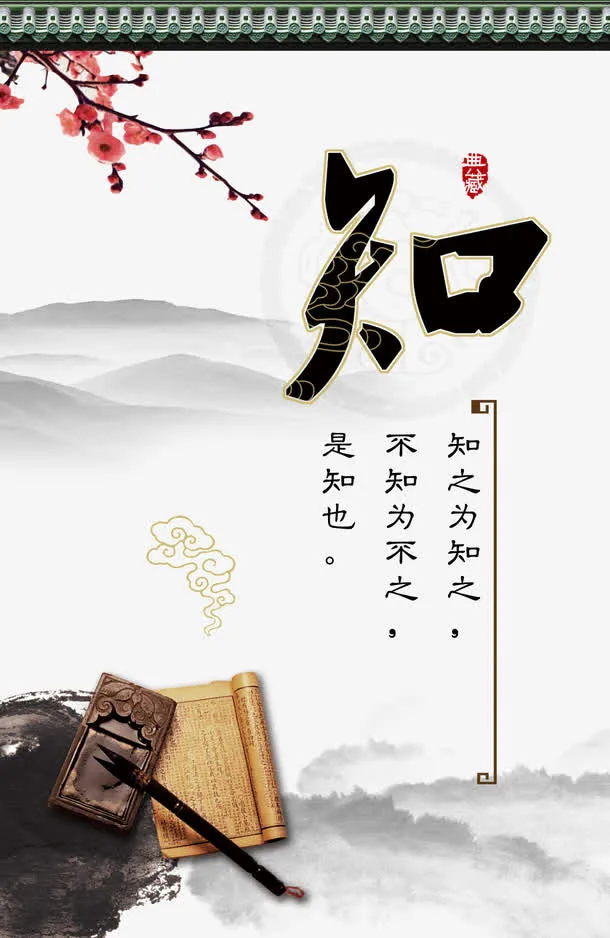 知
典藏
知之为知之，
不知为不之，
是知也。